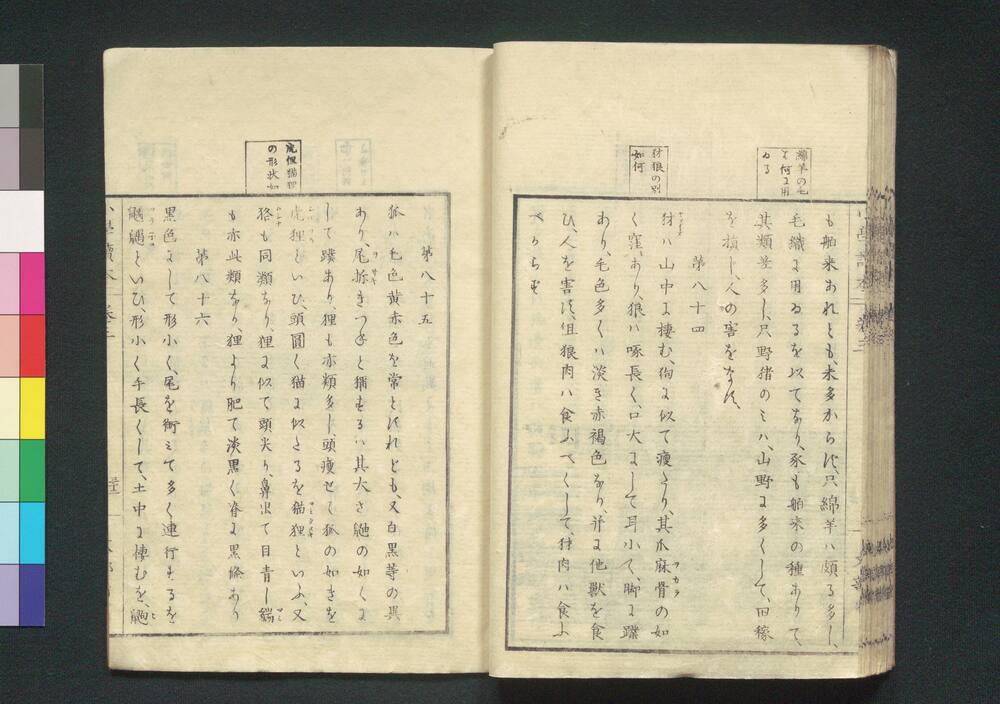 綿羊の毛
は何に用
ゐる
も舶来あれとも、未多からす、只綿羊ハ頗る多し、
毛織に用ゐるを以てなり、豕も舶来の種ありて、
其類甚多し、只野猪のミハ、山野に多くして、田稼
を損し、人の害をなす、
第八十四
豺狼の別
如何
豺ハ山中に棲む、狗に似て痩たり、其爪麻骨の如
く窪あり、狼ハ喙長く、口大にして耳小て、脚に蹼
あり、毛色多くハ淡き赤褐色なり、并に他獣を食
ひ、人を害す、但狼肉ハ食ふへくして、豺肉ハ食ふ
へからす
第八十五
狐ハ毛色黄赤色を常とすれども、又白黒等の異
あり、尾
きつねと稱するハ其大さ鼬の如くに
虎狸猫狸
の形状如
して蹼あり、狸も亦類多し、頭痩せて狐の如きを
虎狸といひ、頭圓く猫に似たるを猫狸といふ、又
狢も同類なり、狸に似て頭尖り、鼻出て目青し、貒
も亦此類なり、狸より肥て淡黒く脊に黒條あり
第八十六
黒色にして形小く、尾を銜ミて多く連行するを
といひ、形小く手長くして、土中に棲むを、鼴